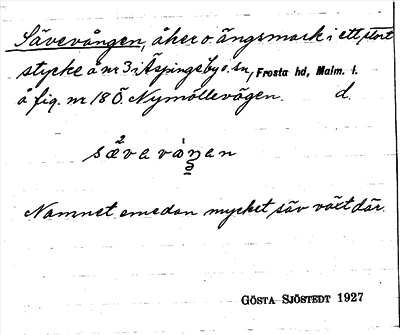 Sävevången, åker o. ängsmark i ett stort
stycke å nr 3 i Äspinge by o. sn, Frosta hd, Malm. l.
å fig. nr 18 Ö. Nymöllevägen. d.
sæ²va vàŋan
Namnet emedan mycket säv växt där.
GÖSTA SJÖSTEDT 1927